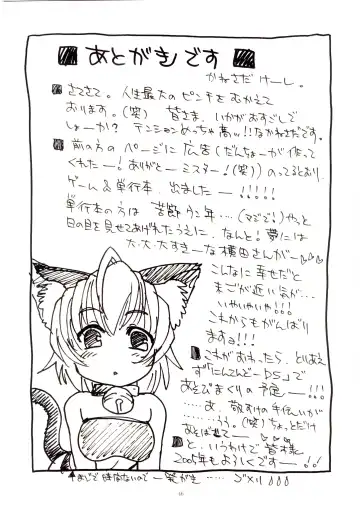 ■ あとがきです ■
かねさだ けーし。
■さてさて。人生最大のピンチをむかえて
おります。(笑) 皆さま、いかがおすごしで
しょーか? テンションめっちゃ高ッ!!なかねさだです。
■前の方のページに広告(だんちょーが作って
くれたー!ありがとーミスター!(笑))のってるとおり
ゲーム&単行本、出ましたー!!!!!
単行本の方は 苦節うこ年‥‥(マジで!)やっと
日の目を見せてあげれたうえに、なんと!夢には
大・大・大すきーな横田さんがー
こんなに幸せだと
まごが近い気が‥‥
いやいやいや!!!
これからもがんばり
ますョ!!!
■これがおわったら、とりあえ
ず「にんてんどーDS」で
あそびまくりの予定ー!!!
‥‥あ、敬すけの手伝いが‥
‥‥う。(笑)ちょっとだけ
あそばせてー
■と、いうわけで皆様
2005年もよろしくですー!!
一発がき‥‥ゴメリ!!!
16